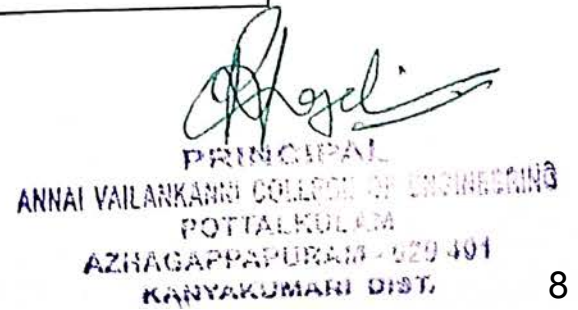 PRINCIPAL
ANNAI VAILANKANNI COLLEGE OF ENGINEERING
POTTALKULAM
AZHAGAPPAPURAM - 629 401
KANYAKUMARI DIST.
8